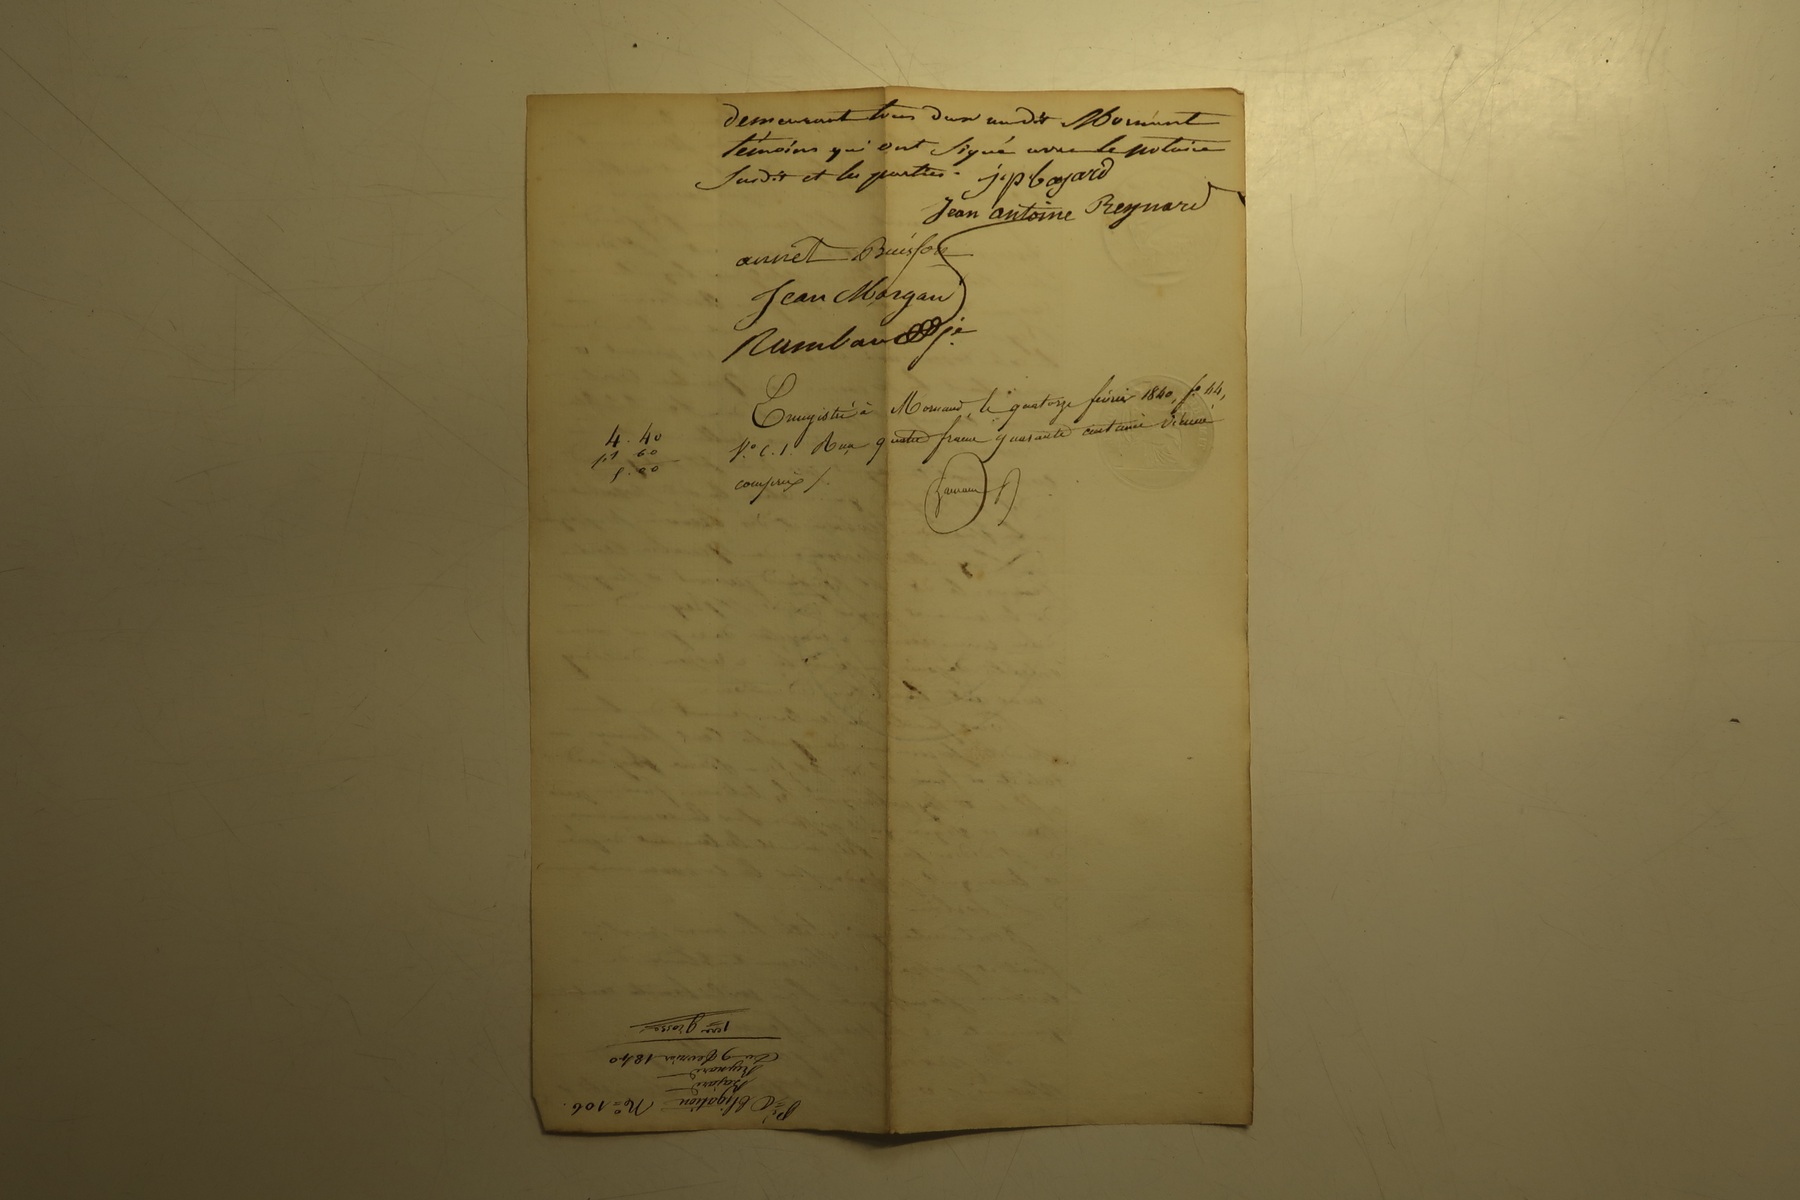 demeurant tous deux audit Mornant
témoins qui ont signé avec le notaire
susdit et les parties. j. p. bajard
Jean antoine Reynard
annet Buisson
Jean Morgan
Rambaud je
Enregistré à Mornand, le quatorze février 1840, fo. 44,
Vo. C. 1. Reçu quatre francs quarante centimes dixième
compris /.
4. 40
60
5. 00
No = 106
Obligation
Bajard
Reynard
Du 9 fevrier 1840
1ere grosse